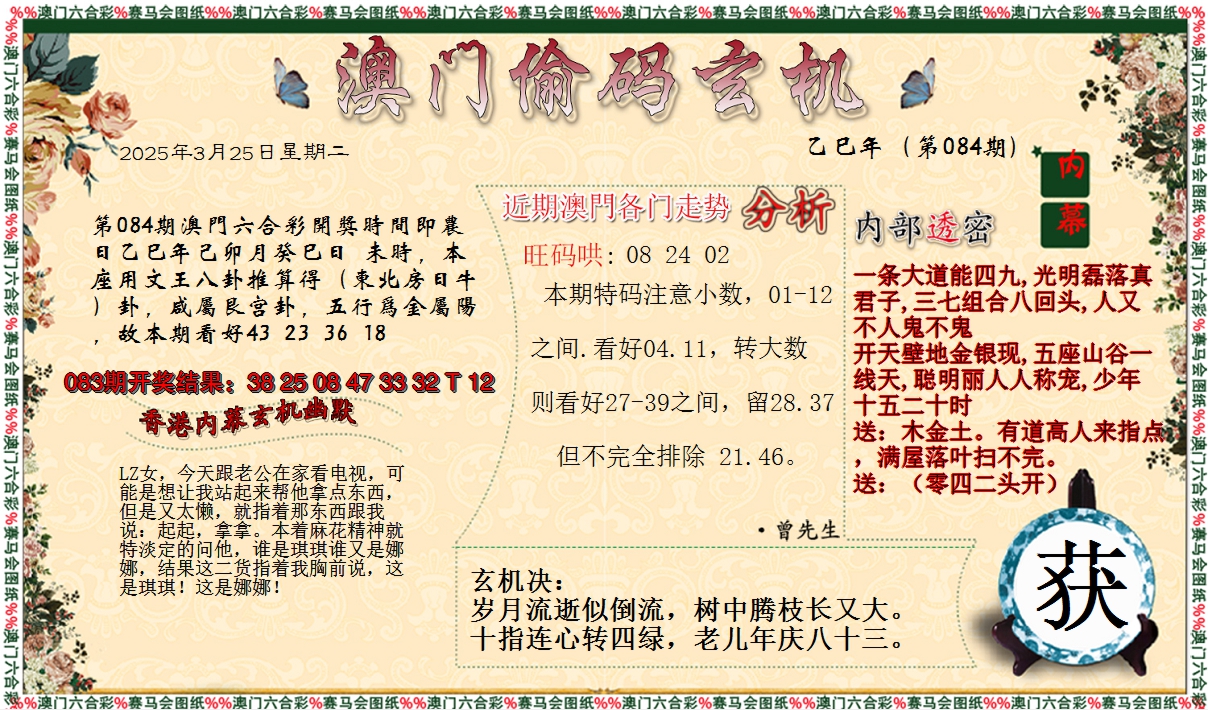 %%澳门六合彩%赛马会图纸%%澳门六合彩%赛马会图纸%%澳门六合彩%赛马会图纸%%澳门六合彩%赛马会图纸%%澳门六合彩%赛马会图纸%%澳门六合彩%赛马会图纸%%
澳门偷码玄机
2025年3月25日星期二
乙巳年（第084期）
内
幕
第084期澳門六合彩開獎時間即農
日乙巳年己卯月癸巳日 未時，本
座用文王八卦推算得（東北房日牛
）卦，咸屬艮宫卦，五行爲金屬陽
，故本期看好43 23 36 18
083期开奖结果：38 25 08 47 33 32 T 12
香港内幕玄机幽默
LZ女，今天跟老公在家看电视，可
能是想让我站起来帮他拿点东西，
但是又太懒，就指着那东西跟我
说：起起，拿拿。本着麻花精神就
特淡定的问他，谁是琪琪谁又是娜
娜，结果这二货指着我胸前说，这
是琪琪！这是娜娜！
近期澳門各门走势 分析
旺码哄: 08 24 02
本期特码注意小数，01-12
之间.看好04.11，转大数
则看好27-39之间，留28.37
但不完全排除 21.46。
·曾先生
内部透密
一条大道能四九,光明磊落真
君子,三七组合八回头,人又
不人鬼不鬼
开天壁地金银现,五座山谷一
线天,聪明丽人人称宠,少年
十五二十时
送：木金土。有道高人来指点
，满屋落叶扫不完。
送：（零四二头开）
玄机决：
岁月流逝似倒流，树中腾枝长又大。
十指连心转四绿，老儿年庆八十三。
获
%%澳门六合彩%赛马会图纸%%澳门六合彩%赛马会图纸%%澳门六合彩%赛马会图纸%%澳门六合彩%赛马会图纸%%澳门六合彩%赛马会图纸%%澳门六合彩%赛马会图纸%%